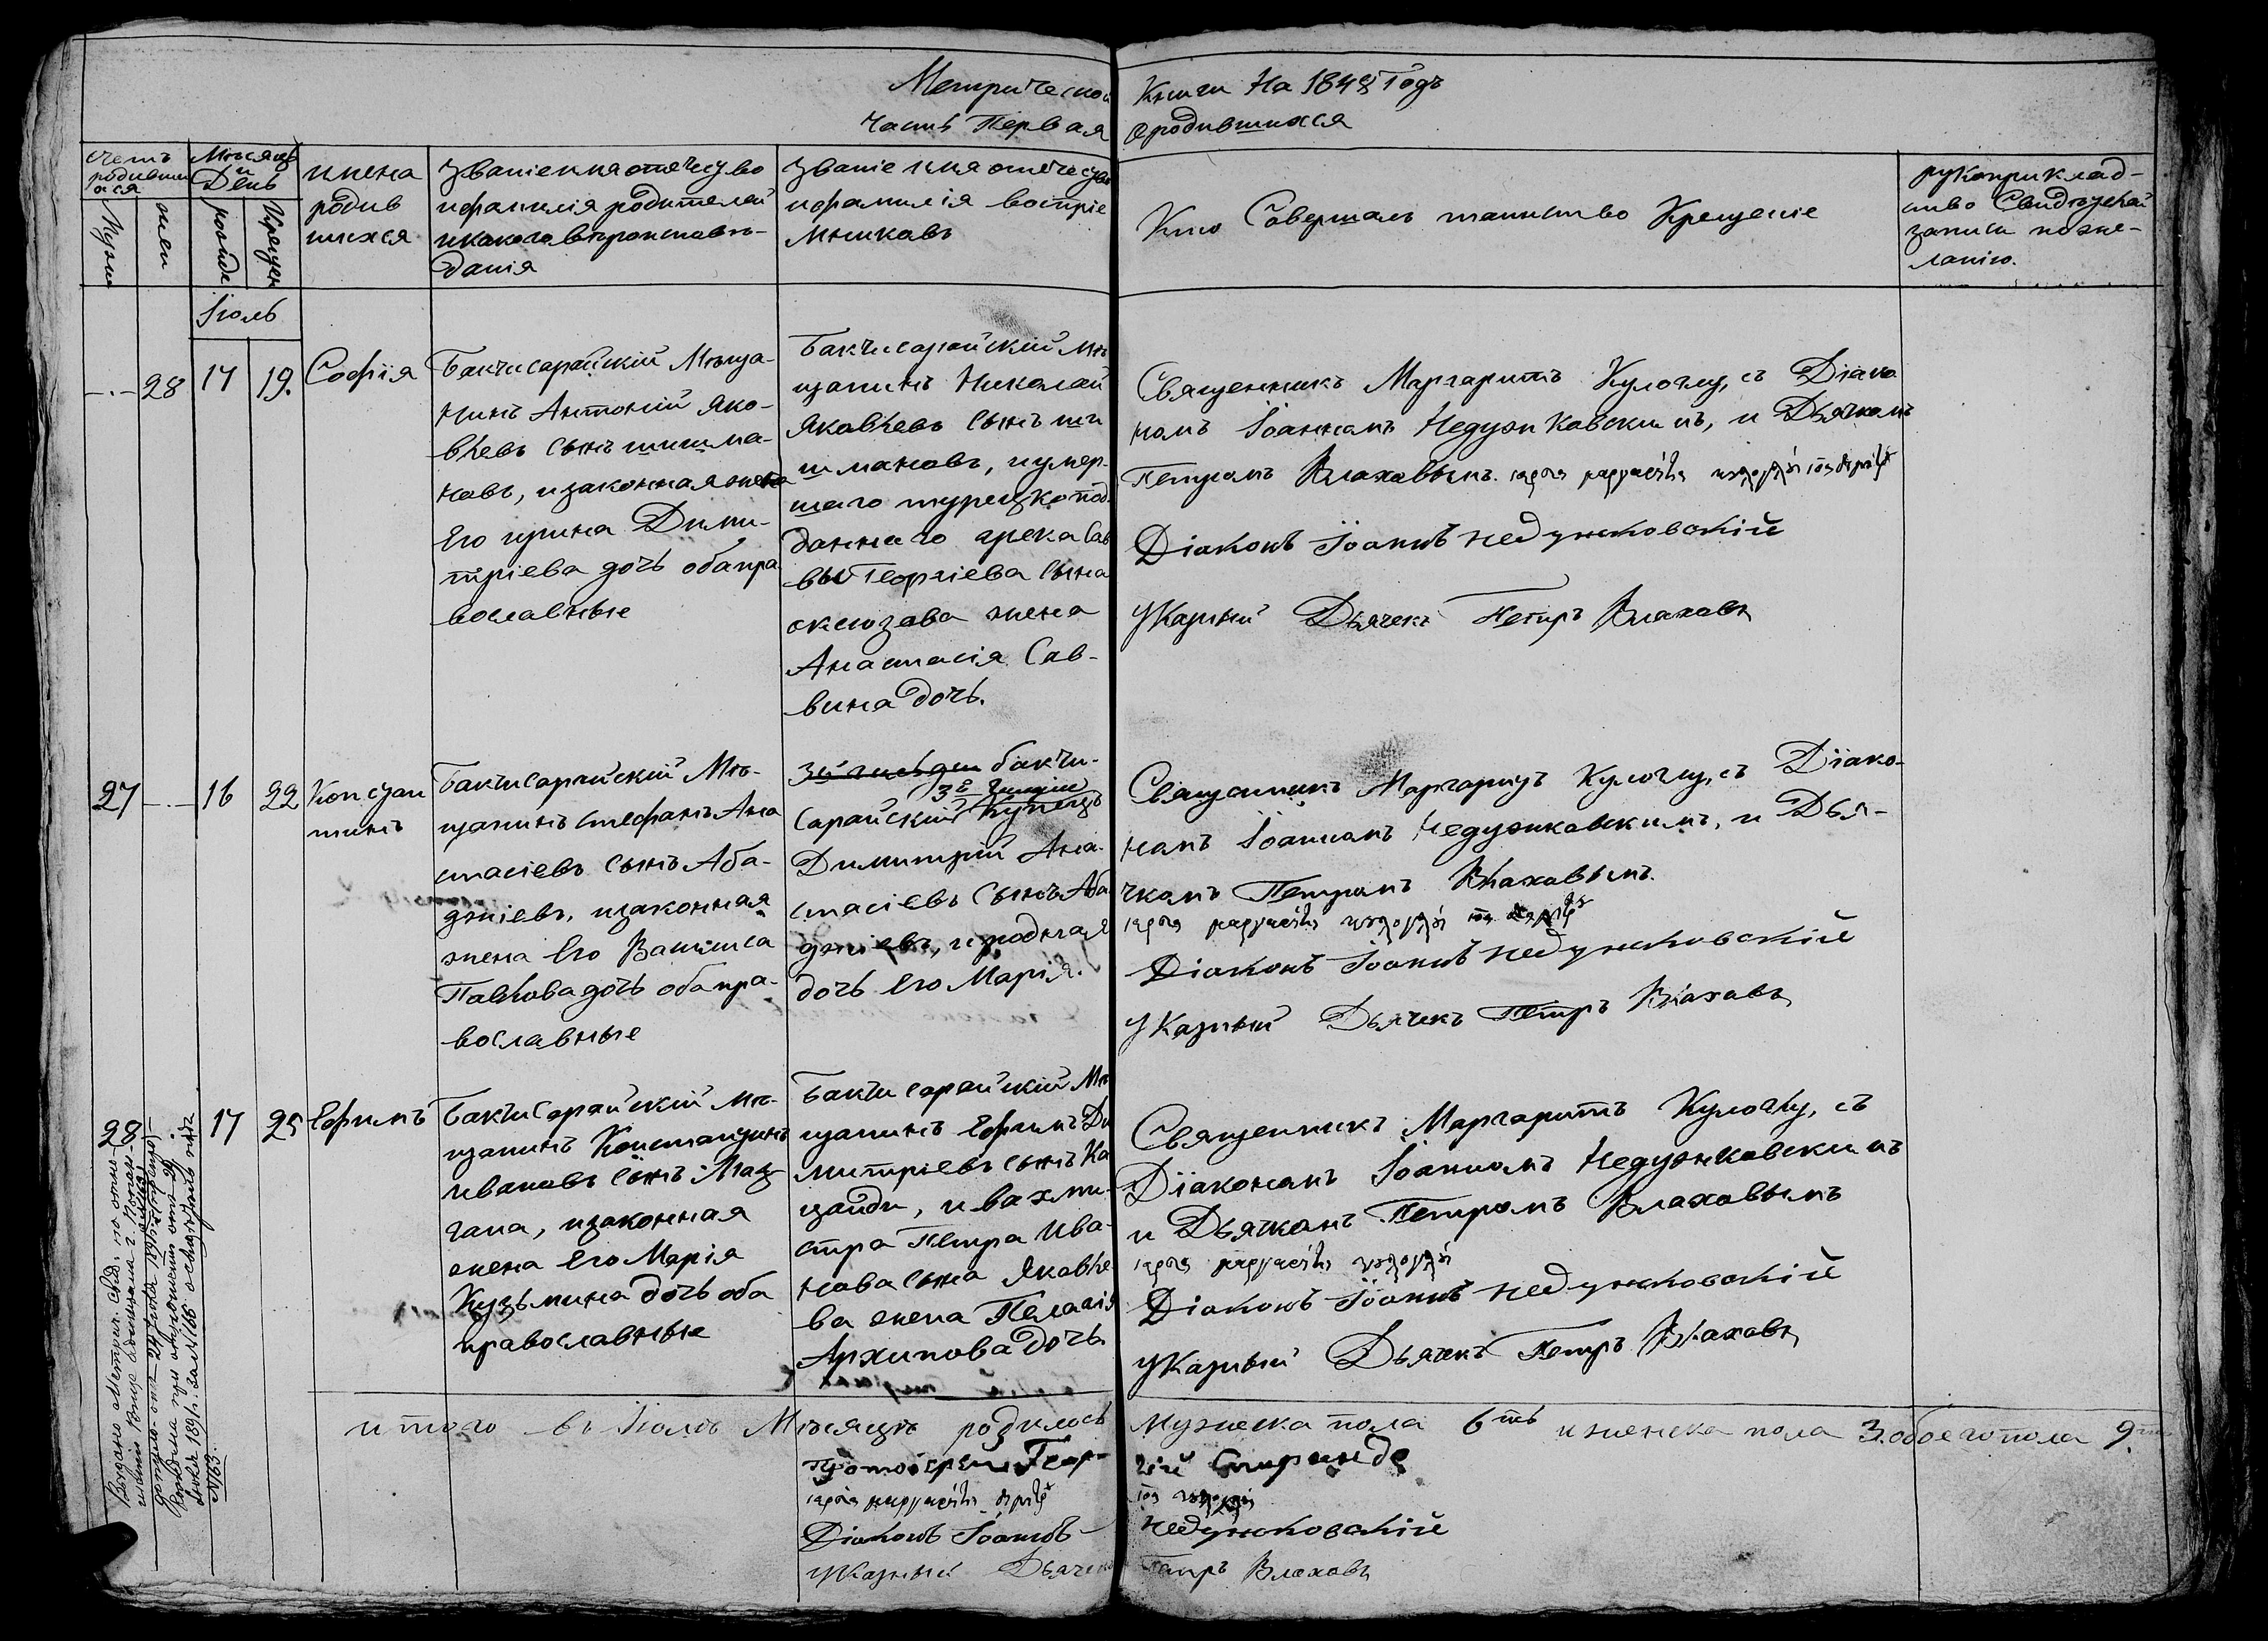 Метрической Книги На 1848 Годъ
Часть Первая о родившихся
Счетъ
родивши
хся
Мужск
женс
Мѣсяцъ
и
День
рожде
Крещен
имена
родив
шихся
Званіе имя отечество
и фамилія родителей
и какого вѣроисповѣ-
данія
Званіе имя отечество
и фамилія воспріе
мниковъ
Кто Совершалъ таинство Крещеніе
рукоприклад-
ство Свидѣтелей
записи по же-
ланію.
Іюль
28
17
19.
Софія
Бакчисарайскій Мѣща-
нинъ Антоній Яко-
влевъ сынъ шишма-
новъ, и законная жена
Его ирина Дими-
тріева дочь оба пра
вославные
Бакчисарайскій мѣ
щанинъ Николай
Яковлевъ сынъ ши
шмановъ, и умер-
шаго турецко под-
даннаго грека Сав
вы Георгіева сына
оксюзова жена
Анастасія Сав-
вина дочь.
Священникъ Маргаритъ Кулоглу, съ Діако
номъ Іоанномъ Недужковскимъ, и Дьячкомъ
Петромъ Влаховымъ.
Діаконъ Іоаннъ недужковскій
Указный Дьячекъ Петръ Влаховъ
27
16
22
Констан
тинъ
Бакчисарайскій Мѣ-
щанинъ стефанъ Ана
стасіевъ сынъ Аба-
джіевъ, и законная
жена Его Василиса
Павлова дочь оба пра-
вославные
бакчи-
сарайскій 3й Гильдіи Купецъ
Димитрій Ана-
стасіевъ сынъ Аба
джіевъ, и родная
дочь Его Марія.
Священникъ Маргаритъ Кулоглу, съ Діако-
номъ Іоанномъ Недужковскимъ, и Дья-
чкомъ Петромъ Влаховымъ.
Діаконъ Іоаннъ недужковскій
Указный Дьячекъ Петръ Влаховъ
28
17
25
Ефимъ
Бакчисарайскій мѣ-
щанинъ Константинъ
Ивановъ сынъ
гана, и законная
жена Его Марія
Кузьмина дочь оба
православные
Бакчисарайскій Мѣ
щанинъ Ефимъ Ди
митріевъ сынъ Ка
цайди, и вахми-
стра Петра Ива-
нова сына Яковле-
ва жена Пелагія
Архипова дочь.
Священникъ Маргаритъ Кулоглу, съ
Діакономъ Іоанномъ Недужковскимъ
и Дьячкомъ Петромъ Влаховымъ
Діаконъ Іоаннъ недужковскій
Указный Дьячекъ Петръ Влаховъ
Выдано Метрич. Свид. по отно-
1891 г. за № 166
№ 63.
итого въ Іюлѣ Мѣсяцѣ родилось мужеска пола 6ть и женска пола 3. обоего пола 9ть
Протоіерей Георгій Спиранде
Діаконъ Іоаннъ недужковскій
Указный Дьячекъ Петръ Влаховъ